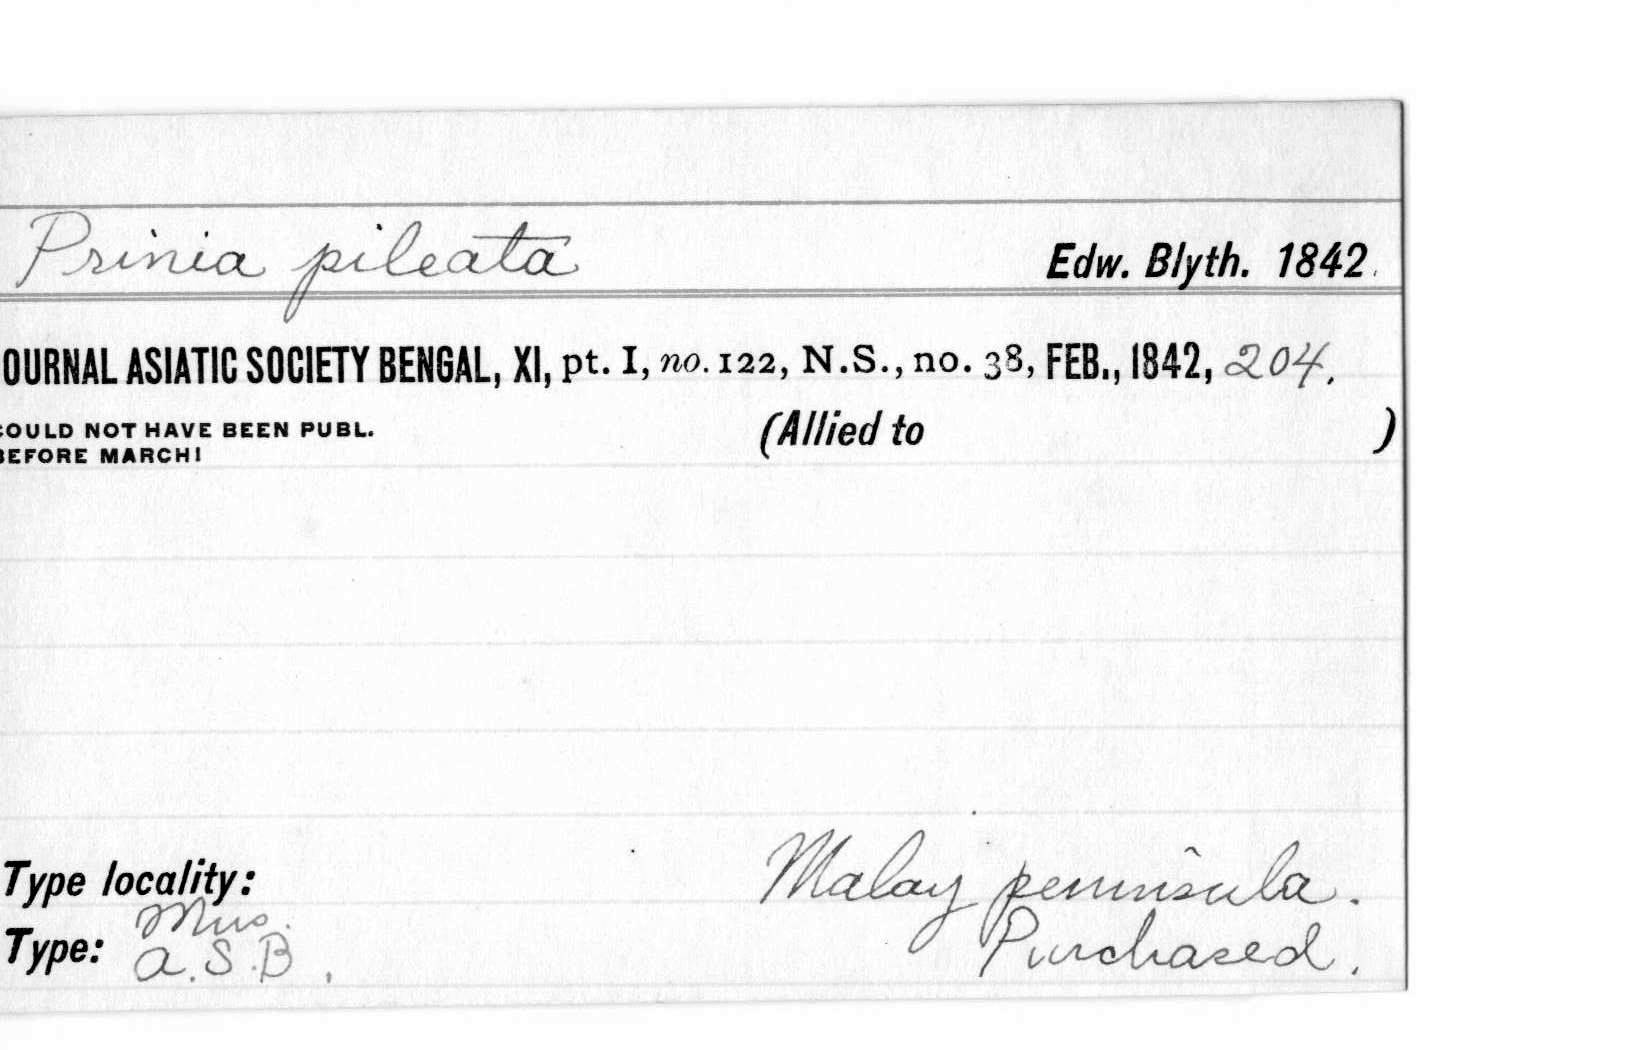 Prinia pileata Edw. Blyth. 1842.
OURNAL ASIATIC SOCIETY BENGAL, XI, pt. I, no. 122, N.S., no. 38, FEB., 1842, 204.
COULD NOT HAVE BEEN PUBL. (Allied to )
BEFORE MARCH!
Type locality: Malay peninsula.
Mus. Purchased.
Type: A.S.B.